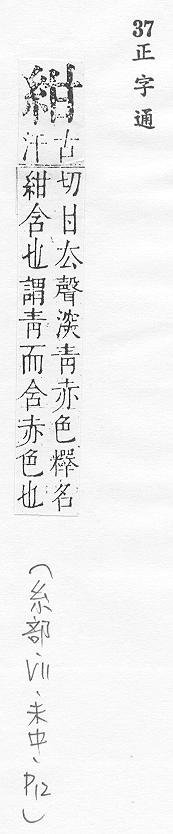 37 正字通
紺
古汗
切甘厺聲深青赤色釋名
紺含也謂青而含赤色也
（糸部、VII、未中、P12）